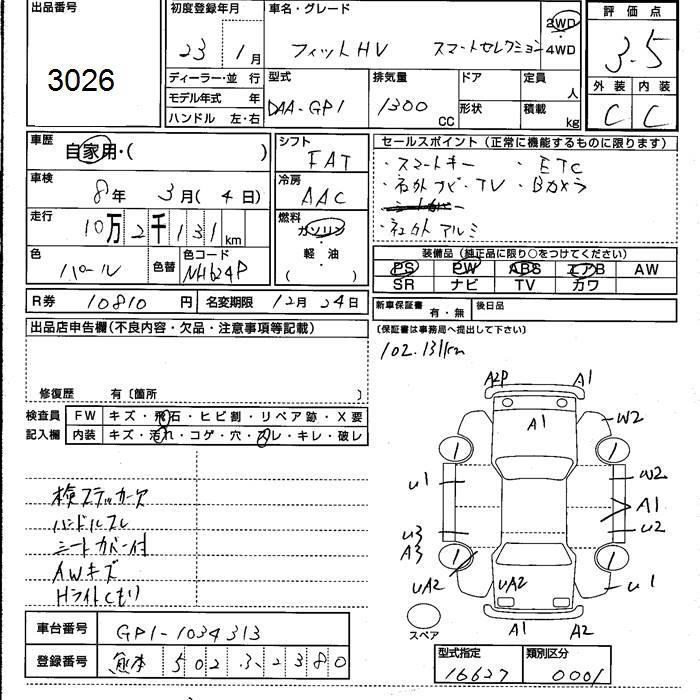 出品番号
3026
初度登録年月
23年 1月
車名・グレード
フィットHV スマートセレクション
2WD・4WD
評価点
3.5
外装 内装
C C
ディーラー・並行
モデル年式 年
ハンドル 左・右
型式
DAA-GP1
排気量
1300 CC
ドア
形状
定員 人
積載 kg
車歴
自家用・( )
車検
8年 3月 (4日)
走行
10万2千131km
色
パール
色替
色コード
NH624P
シフト
FAT
冷房
AAC
燃料
ガソリン・軽・油
( )
セールスポイント(正常に機能するものに限ります)
・スマートキー ・ETC
・社外ナビ・TV ・Bカメラ
・社外アルミ
装備品(純正品に限り○をつけてください)
PS PW ABS エアB AW
SR ナビ TV カワ
R券 10810円 名変期限 12月24日
新車保証書 有・無 後日品
(保証書は事務局へ提出して下さい)
出品店申告欄(不良内容・欠品・注意事項等記載)
修復歴 有〔箇所 〕
102.131km
検査員記入欄
FW キズ・飛石・ヒビ割・リペア跡・X要
内装 キズ・汚れ・コゲ・穴・スレ・キレ・破レ
検ステッカー欠
ハンドルスレ
シートカバー付
AWキズ
Hライトくもり
A2P A1
A1 W2
U1 W2
A1
U3 U2
A3
UA2 UA2 U1
スペア
A1 A2
車台番号 GP1-1034313
登録番号 熊本 502 ひ 2380
型式指定 16627
類別区分 0001